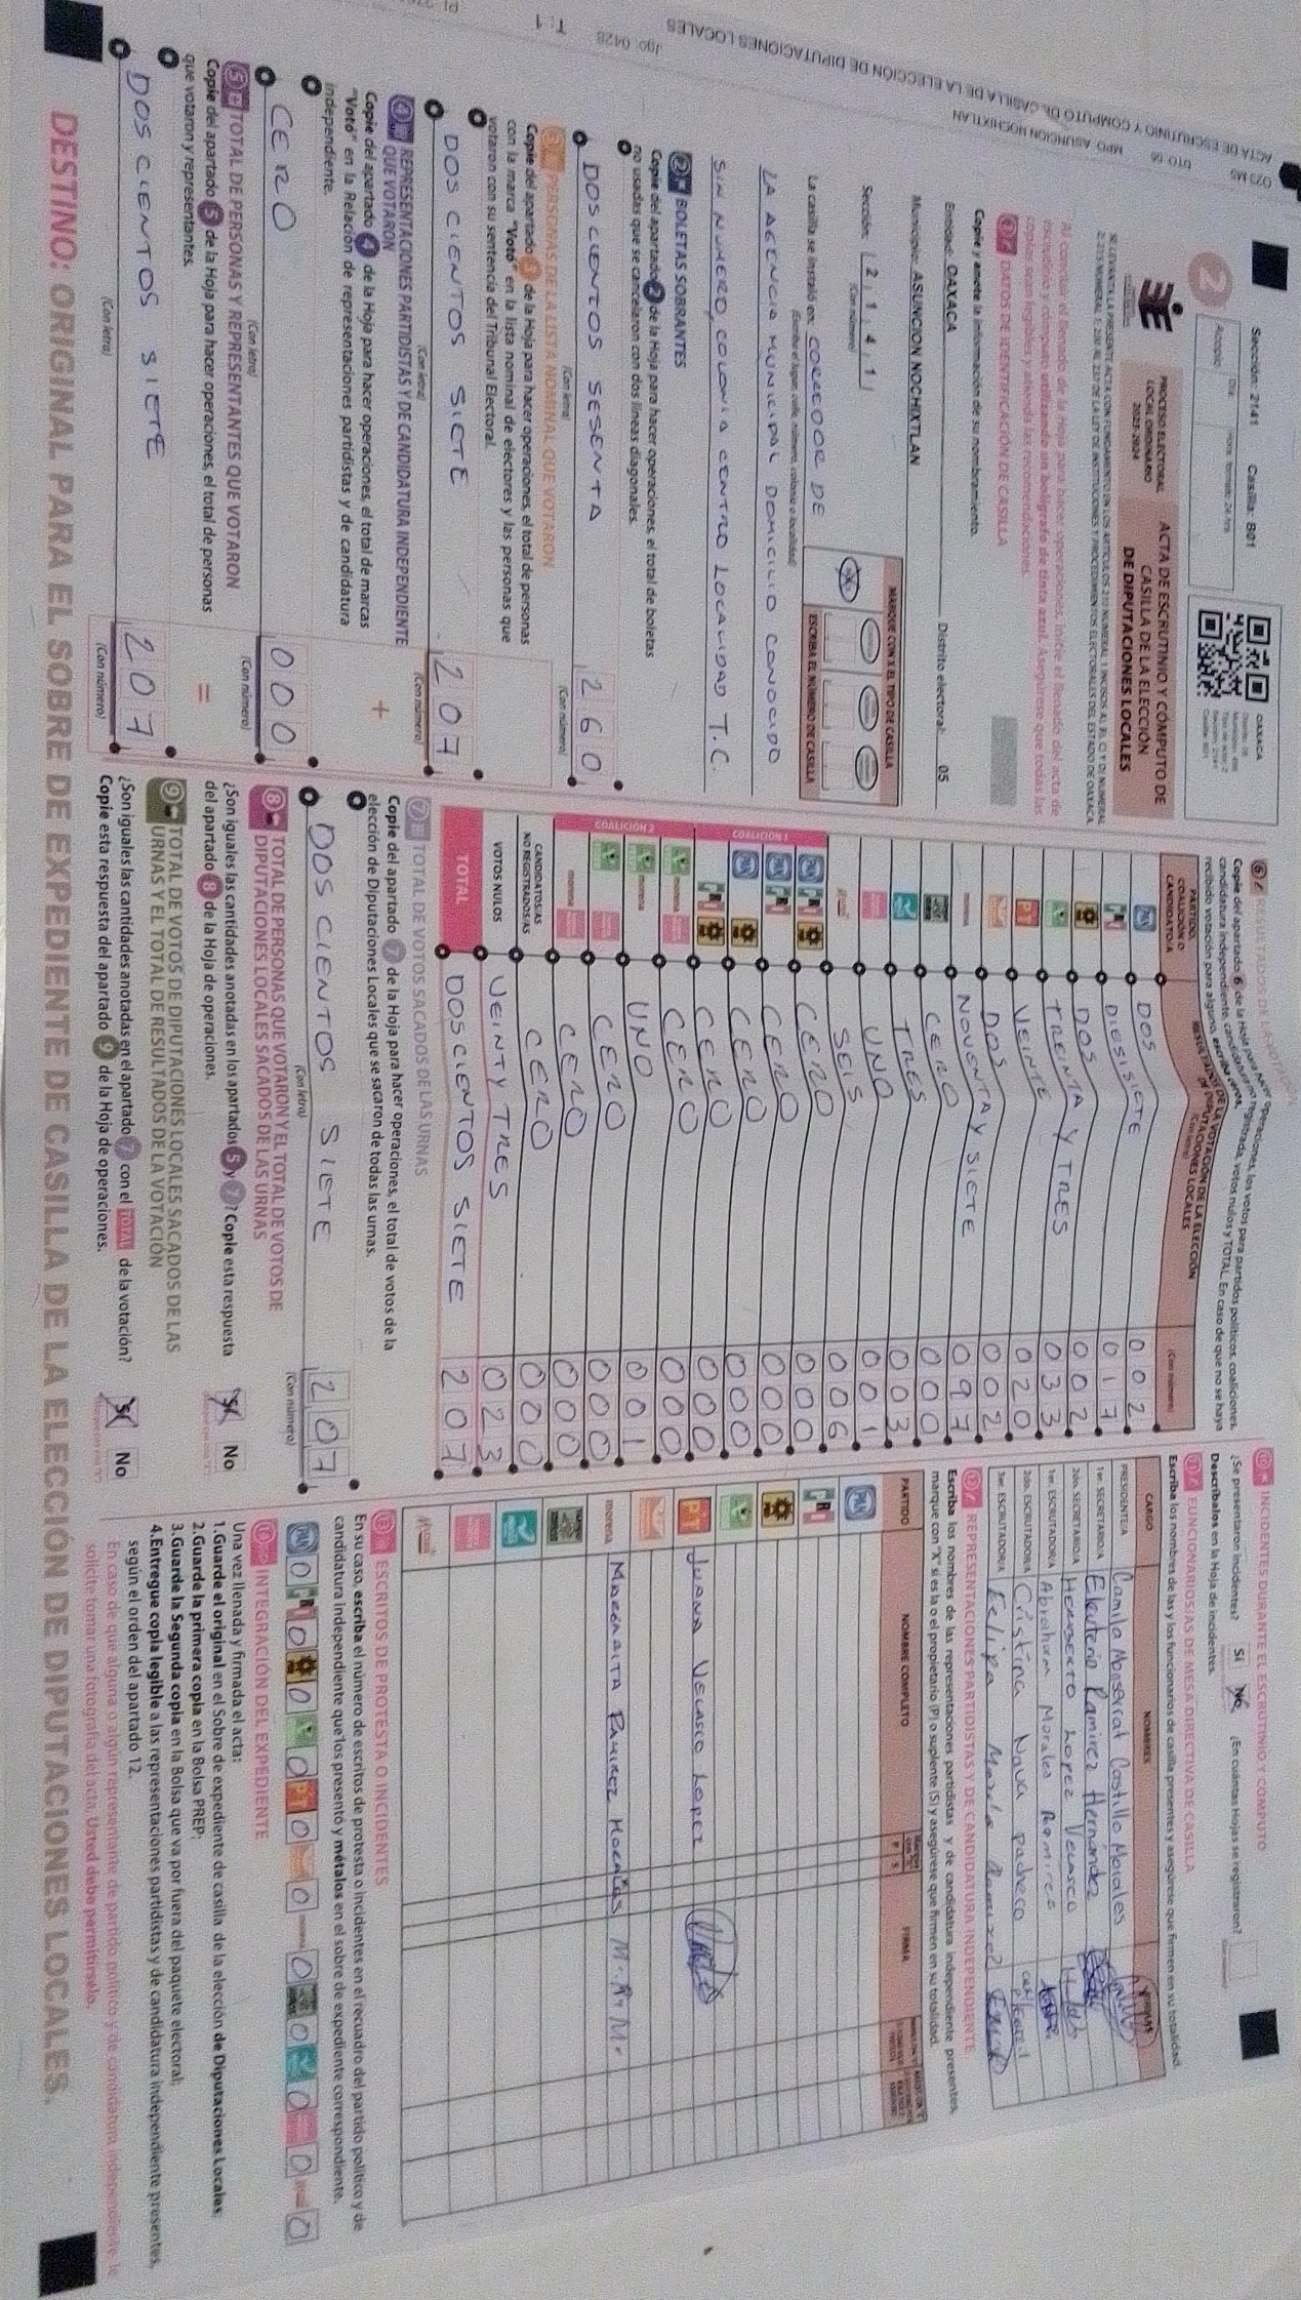 ACTA DE ESCRUTINIO Y CÓMPUTO DE CASILLA DE LA ELECCIÓN DE DIPUTACIONES LOCALES
DTO: 05 MPO: ASUNCION NOCHIXTLAN
T: 1
Sección: 2141 Casilla: B01
OAXACA
2
Acopio
PROCESO ELECTORAL
LOCAL ORDINARIO
2023-2024
ACTA DE ESCRUTINIO Y CÓMPUTO DE
CASILLA DE LA ELECCIÓN
DE DIPUTACIONES LOCALES
Al concluir el llenado de la Hoja para hacer operaciones, inicie el llenado del acta de
escrutinio y cómputo utilizando un bolígrafo de tinta azul. Asegúrese que todas las
copias sean legibles y atienda las recomendaciones.
1 DATOS DE IDENTIFICACIÓN DE CASILLA
Copie y anote la información de su nombramiento.
Entidad: OAXACA Distrito electoral: 05
Municipio: ASUNCION NOCHIXTLAN
Sección: 2 1 4 1
(Con número)
MARQUE CON X EL TIPO DE CASILLA
ESCRIBA EL NÚMERO DE CASILLA
La casilla se instaló en: CORREDOR DE
LA AGENCIA MUNICIPAL DOMICILIO CONOCIDO
SIN NUMERO, COLONIA CENTRO LOCALIDAD T.C.
2 BOLETAS SOBRANTES
Copie del apartado 2 de la Hoja para hacer operaciones, el total de boletas
no usadas que se cancelaron con dos líneas diagonales.
DOSCIENTOS SESENTA 260
(Con letra) (Con número)
3 PERSONAS DE LA LISTA NOMINAL QUE VOTARON
Copie del apartado 3 de la Hoja para hacer operaciones, el total de personas
con la marca "Votó" en la lista nominal de electores y las personas que
votaron con su sentencia del Tribunal Electoral.
DOS CIENTOS SIETE 207
(Con letra) (Con número)
4 REPRESENTACIONES PARTIDISTAS Y DE CANDIDATURA INDEPENDIENTE
QUE VOTARON
+
Copie del apartado 4 de la Hoja para hacer operaciones, el total de marcas
"Votó" en la Relación de representaciones partidistas y de candidatura
independiente.
CERO 000
(Con letra) (Con número)
5 TOTAL DE PERSONAS Y REPRESENTANTES QUE VOTARON
=
Copie del apartado 5 de la Hoja para hacer operaciones, el total de personas
que votaron y representantes.
DOS CIENTOS SIETE 207
(Con letra) (Con número)
6 RESULTADOS DE LA VOTACIÓN
Copie del apartado 6 de la Hoja para hacer operaciones, los votos para partidos políticos, coaliciones,
candidatura independiente, candidatura no registrada, votos nulos y TOTAL. En caso de que no se haya
recibido votación para alguno, escriba ceros.
PARTIDO,
COALICIÓN O
CANDIDATO/A
RESULTADOS DE LA VOTACIÓN DE LA ELECCIÓN
DE DIPUTACIONES LOCALES
(Con letra)
(Con número)
PAN DOS 002
PRI DIESISIETE 017
PRD DOS 002
TREINTA Y TRES 033
PT VEINTE 020
DOS 002
morena NOVENTA Y SIETE 097
CERO 000
TRES 003
UNO 001
SEIS 006
COALICIÓN 1
PAN PRI PRD CERO 000
PAN PRI CERO 000
PAN PRD CERO 000
PRI PRD CERO 000
COALICIÓN 2
morena CERO 000
morena UNO 001
CERO 000
morena CERO 000
CANDIDATOS/AS
NO REGISTRADOS/AS CERO 000
VOTOS NULOS VEINTY TRES 023
TOTAL DOSCIENTOS SIETE 207
7 TOTAL DE VOTOS SACADOS DE LAS URNAS
Copie del apartado 7 de la Hoja para hacer operaciones, el total de votos de la
elección de Diputaciones Locales que se sacaron de todas las urnas.
DOS CIENTOS SIETE 207
(Con letra) (Con número)
8 TOTAL DE PERSONAS QUE VOTARON Y EL TOTAL DE VOTOS DE
DIPUTACIONES LOCALES SACADOS DE LAS URNAS
¿Son iguales las cantidades anotadas en los apartados 5 y 7? Copie esta respuesta
del apartado 8 de la Hoja de operaciones. Sí No
9 TOTAL DE VOTOS DE DIPUTACIONES LOCALES SACADOS DE LAS
URNAS Y EL TOTAL DE RESULTADOS DE LA VOTACIÓN
¿Son iguales las cantidades anotadas en el apartado 7 con el TOTAL de la votación?
Copie esta respuesta del apartado 9 de la Hoja de operaciones. Sí No
10 INCIDENTES DURANTE EL ESCRUTINIO Y CÓMPUTO
¿Se presentaron incidentes? Sí No ¿En cuántas Hojas se registraron?
Descríbalos en la Hoja de incidentes.
11 FUNCIONARIOS/AS DE MESA DIRECTIVA DE CASILLA
Escriba los nombres de las y los funcionarios de casilla presentes y asegúrese que firmen en su totalidad.
CARGO NOMBRES FIRMAS
PRESIDENTE/A Camila Monserrat Castillo Morales
1er. SECRETARIO/A Eleuterio Ramirez Hernández
2do. SECRETARIO/A HERIBERTO LOPEZ VELASCO
1er. ESCRUTADOR/A Abraham Morales Ramires
2do. ESCRUTADOR/A Cristina Nava pacheco
3er. ESCRUTADOR/A Felipa Ramirez
12 REPRESENTACIONES PARTIDISTAS Y DE CANDIDATURA INDEPENDIENTE
Escriba los nombres de las representaciones partidistas y de candidatura independiente presentes,
marque con "X" si es la o el propietario (P) o suplente (S) y asegúrese que firmen en su totalidad.
PARTIDO NOMBRE COMPLETO P S FIRMA
PAN
PRI
PRD
PT JUANA VELASCO LOPEZ
morena MARGARITA RAMIREZ MORALES M. R. M.
13 ESCRITOS DE PROTESTA O INCIDENTES
En su caso, escriba el número de escritos de protesta o incidentes en el recuadro del partido político y de
candidatura independiente que los presentó y métalos en el sobre de expediente correspondiente.
PAN 0 PRI 0 PRD 0 0 PT 0 0 0 0 0 0 0
14 INTEGRACIÓN DEL EXPEDIENTE
Una vez llenada y firmada el acta:
1.Guarde el original en el Sobre de expediente de casilla de la elección de Diputaciones Locales;
2.Guarde la primera copia en la Bolsa PREP;
3.Guarde la Segunda copia en la Bolsa que va por fuera del paquete electoral;
4.Entregue copia legible a las representaciones partidistas y de candidatura independiente presentes,
según el orden del apartado 12.
En caso de que alguna o algún representante de partido político y de candidatura independiente, le
solicite tomar una fotografía del acta, Usted debe permitírselo.
DESTINO: ORIGINAL PARA EL SOBRE DE EXPEDIENTE DE CASILLA DE LA ELECCIÓN DE DIPUTACIONES LOCALES.